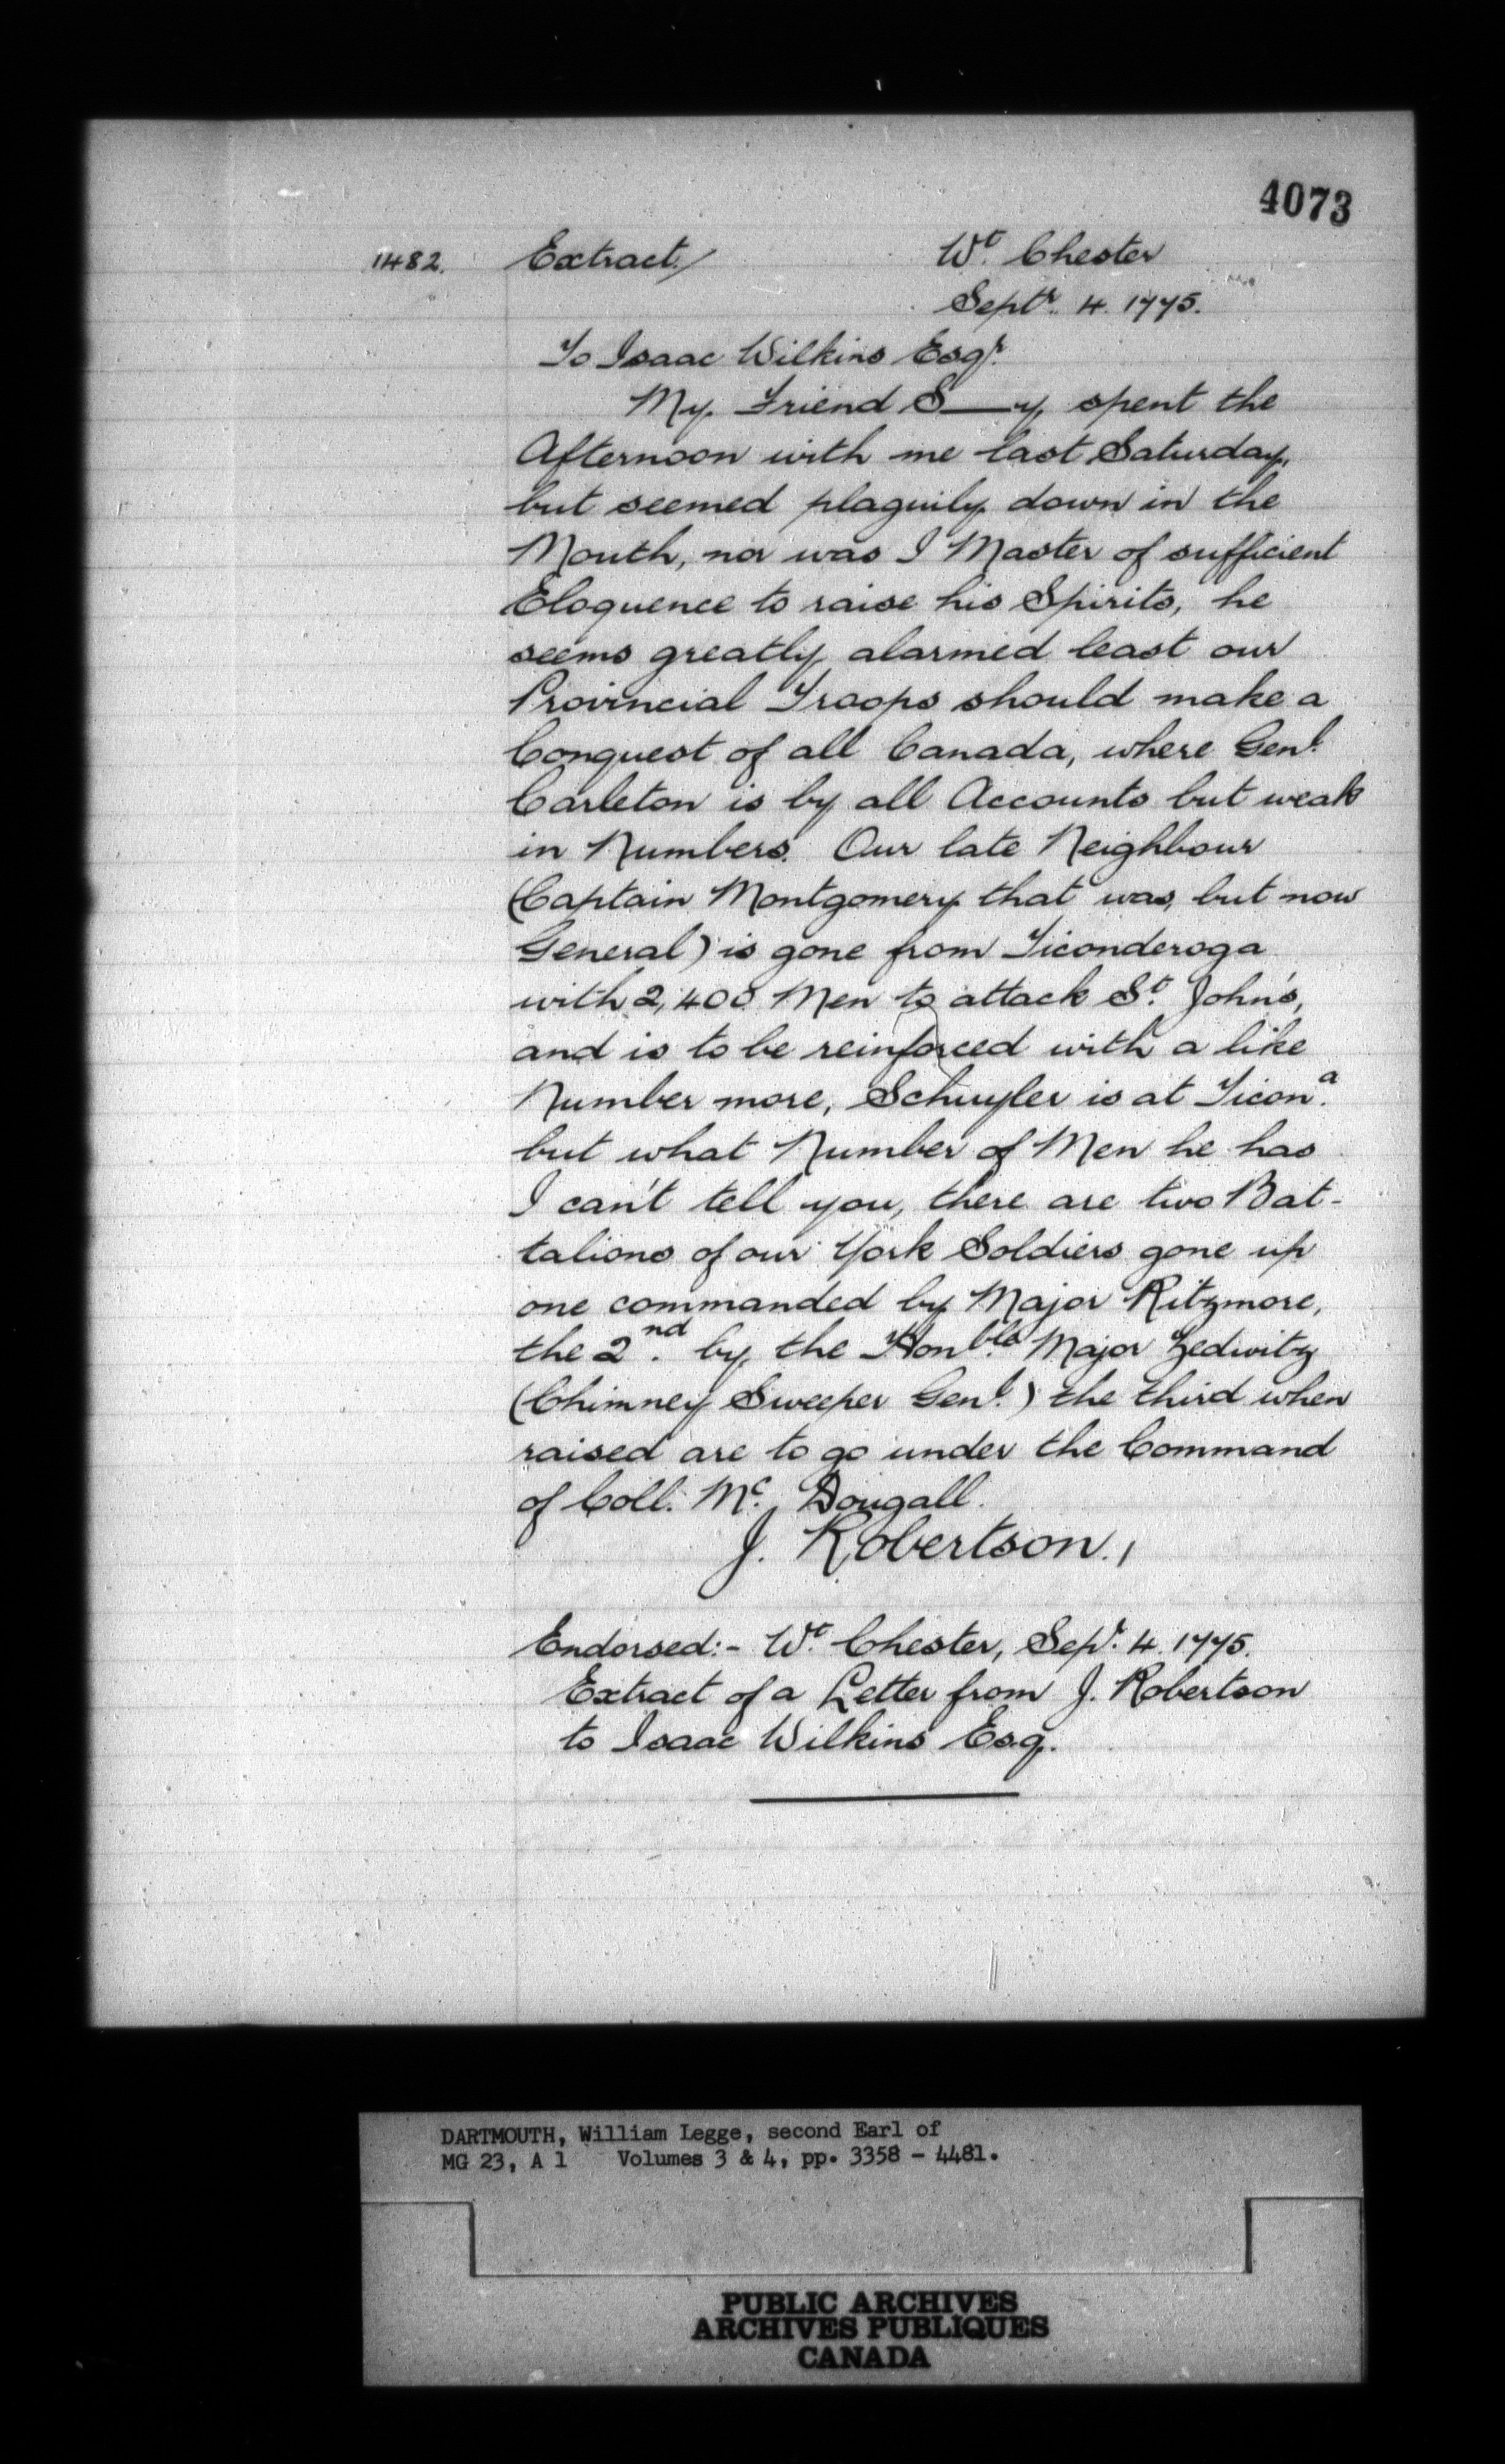 4073
1482. Extract/ Wt. Chester
Septr. 4. 1775.
To Isaac Wilkins Esqr.
My Friend S——y spent the
Afternoon with me last Saturday,
but seemed plaguily down in the
Mouth, nor was I Master of sufficient
Eloquence to raise his Spirits, he
seems greatly alarmed least our
Provincial Troops should make a
Conquest of all Canada, where Genl.
Carleton is by all Accounts but weak
in Numbers. Our late Neighbour
(Captain Montgomery that was, but now
General) is gone from Ticonderoga
with 2,400 Men to attack St. John's,
and is to be reinforced with a like
Number more, Schuyler is at Ticona.
but what Number of Men he has
I can't tell you, there are two Bat-
talions of our York Soldiers gone up
one commanded by Major Ritzmore,
the 2nd. by the Honble. Major Zedwitz
(Chimney Sweeper Genl.) the third when
raised are to go under the Command
of Coll. Mc. Dougall.
J. Robertson.,
Endorsed:- Wt. Chester, Sepr. 4. 1775.
Extract of a Letter from J. Robertson
to Isaac Wilkins Esq.
DARTMOUTH, William Legge, second Earl of
MG 23, A 1 Volumes 3 & 4, pp. 3358 - 4481.
PUBLIC ARCHIVES
ARCHIVES PUBLIQUES
CANADA